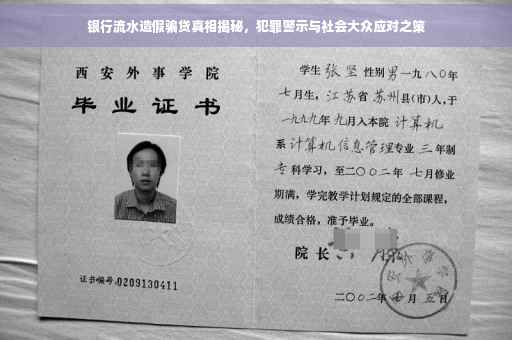 银行流水造假骗贷真相揭秘，犯罪警示与社会大众应对之策
西安外事学院
毕业证书
证书编号:0209130411
学生张坚性别男一九八〇年
七月生，江苏省苏州县(市)人,于
一九九九年九月入本院计算机
系计算机信息管理专业三年制
专科学习，至二〇〇二年七月修业
期满，学完教学计划规定的全部课程，
成绩合格，准予毕业。
院长
二〇〇二年七月五日